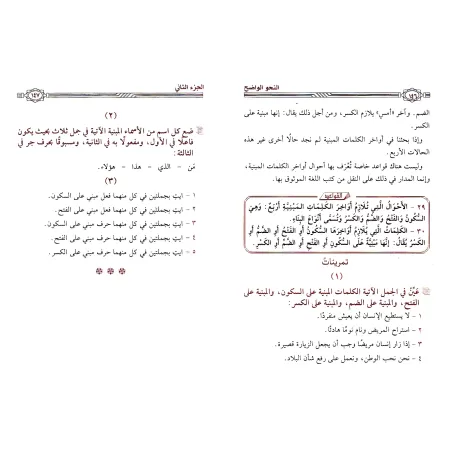 النحو الواضح
١٤٦
الضم. وآخر «أمسِ» يلازم الكسر، ومن أجل ذلك يقال: إنها مبنية على
الكسر.
وإذا بحثنا في أواخر الكلمات المبنية لم نجد حالًا أخرى غير هذه
الحالات الأربع.
وليست هناك قواعد خاصة تُعْرَف بها أحوال أواخر الكلمات المبنية،
وإنما المدار في ذلك على النقل من كتب اللغة الموثوق بها.
القواعد
٢٩ - الأَحْوَالُ الَّتِي تُلازِمُ أَوَاخِرَ الكَلِمَاتِ المَبْنِيَّةِ أَرْبَعٌ: وَهِيَ
السُّكُونُ وَالفَتْحُ وَالضَّمُّ وَالكَسْرُ وَتُسَمَّى أَنْوَاعَ البِنَاءِ.
٣٠ - الكَلِمَاتُ الَّتِي يُلازِمُ أَوَاخِرَهَا السُّكُونُ أَوِ الفَتْحُ أَوِ الضَّمُّ أَوِ
الكَسْرُ يُقَالُ: إِنَّهَا مَبْنِيَّةٌ عَلَى السُّكُونِ أَوِ الفَتْحِ أَوِ الضَّمِّ أَوِ الكَسْرِ.
تمرينات
(١)
عَيِّنْ في الجمل الآتية الكلمات المبنية على السكون، والمبنية على
الفتح، والمبنية على الضم، والمبنية على الكسر:
١ - لا يستطيع الإنسان أن يعيش منفردًا.
٢ - استراح المريض ونام نومًا هادئًا.
٣ - إذا زار إنسان مريضًا وجب أن يجعل الزيارة قصيرة.
٤ - نحن نحب الوطن، ونعمل على رفع شأن البلاد.
الجزء الثاني
١٤٧
(٢)
ضع كل اسم من الأسماء المبنية الآتية في جمل ثلاث بحيث يكون
فاعلًا في الأولى، ومفعولًا به في الثانية، ومسبوقًا بحرف جر في
الثالثة:
مَن - الذي - هذا - هؤلاء.
(٣)
١ - ايتِ بجملتين في كل منهما فعل مبني على السكون.
٢ - ايتِ بجملتين في كل منهما فعل مبني على الفتح.
٣ - ايتِ بجملتين في كل منهما حرف مبني على السكون.
٤ - ايتِ بجملتين في كل منهما حرف مبني على الفتح.
٥ - ايتِ بجملتين في كل منهما حرف مبني على الكسر.